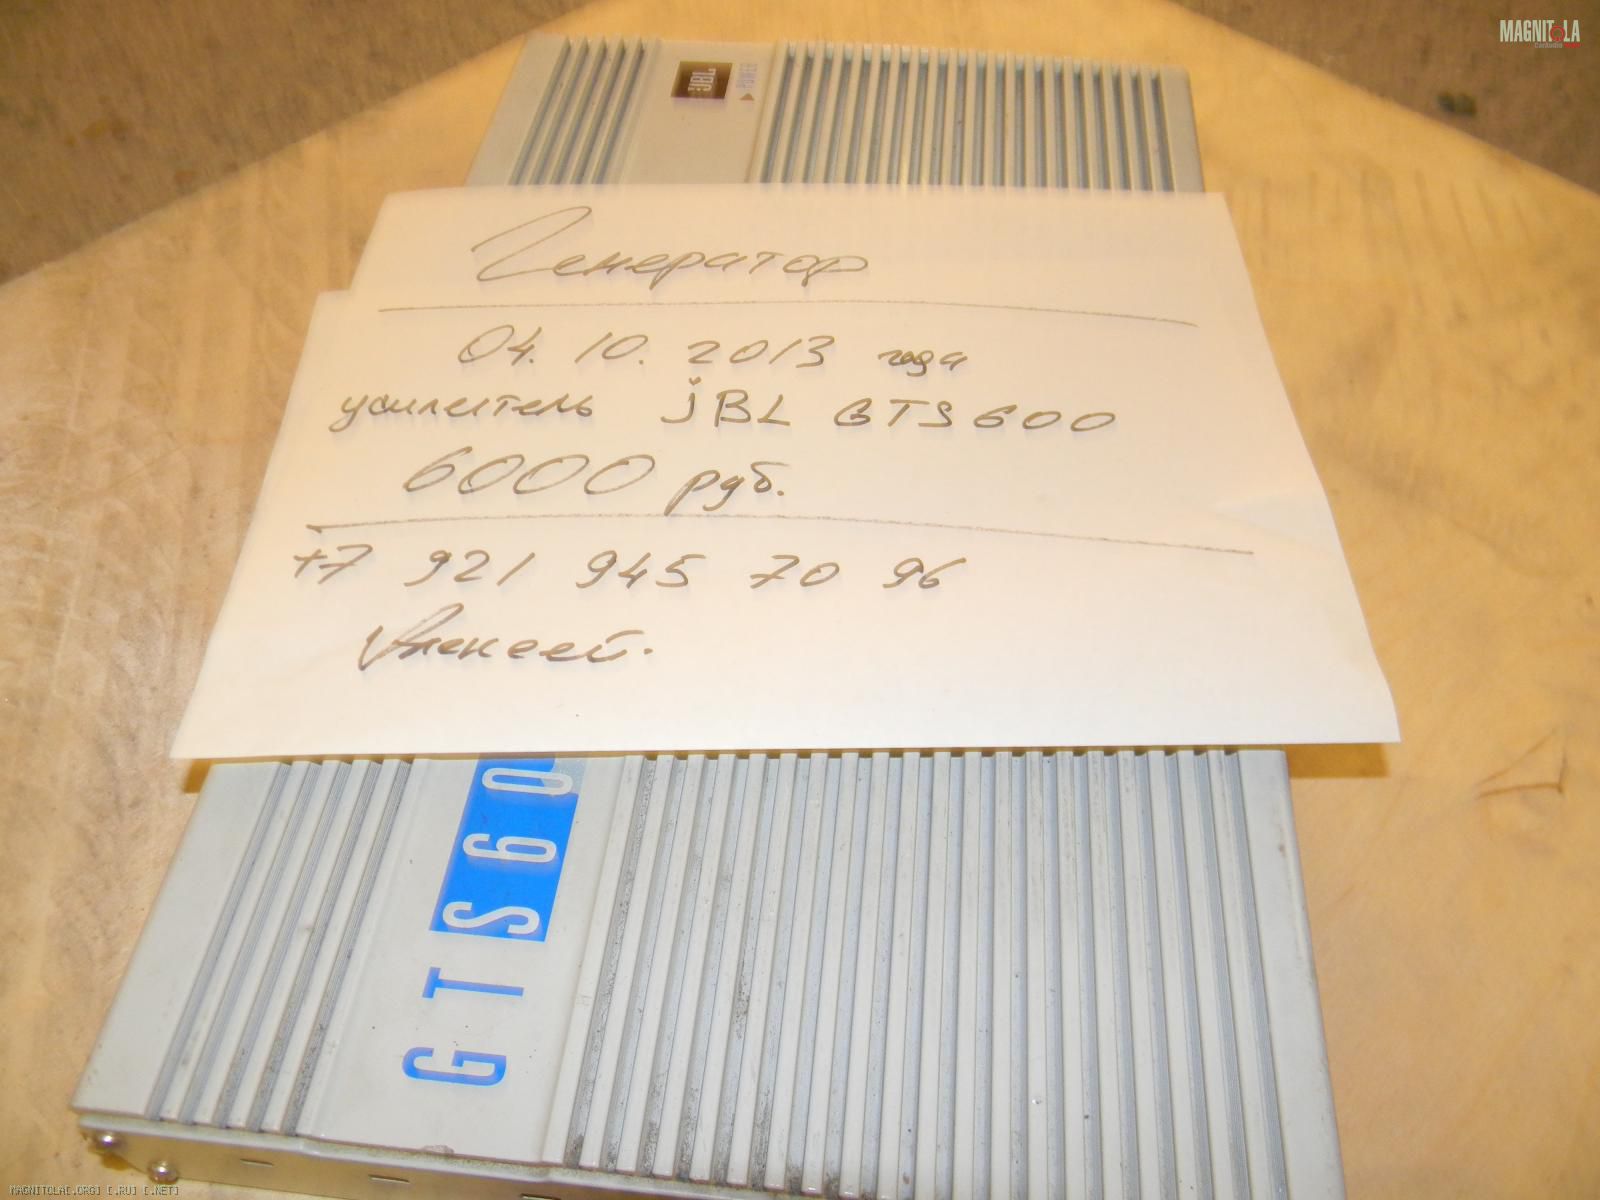 MAGNITOLA
JBL
POWER
Генератор
04. 10. 2013 года
усилитель jBL GTS600
6000 руб.
+7 921 945 70 96
Алексей.
GTS60
MAGNITOLA[.ORG] [.RU] [.NET]